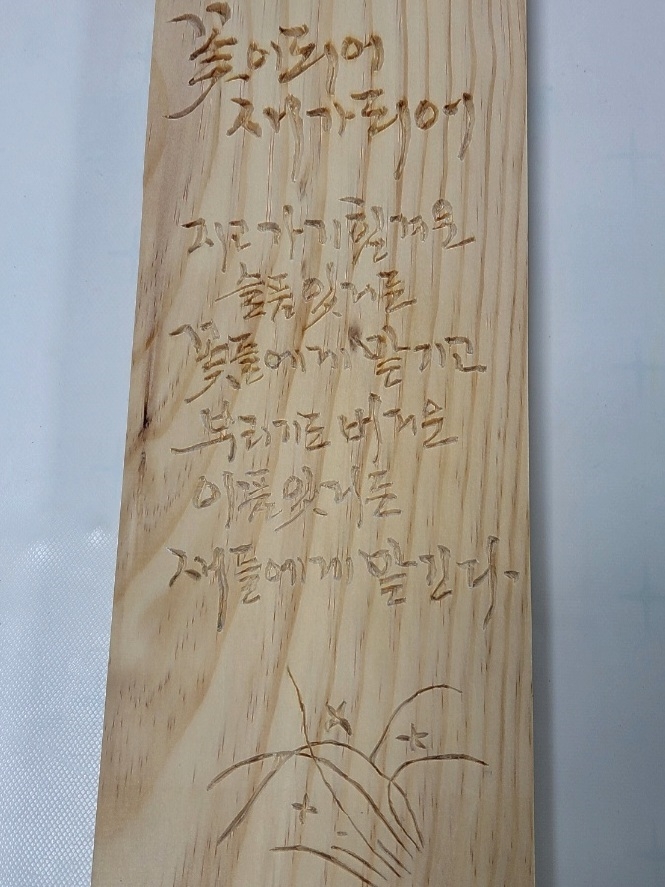 꽃이되어
새가되어
지고가기힘겨운
슬픔있거든
꽃들에게맡기고
부리기도 버거운
아픔있거든
새들에게 맡긴다.